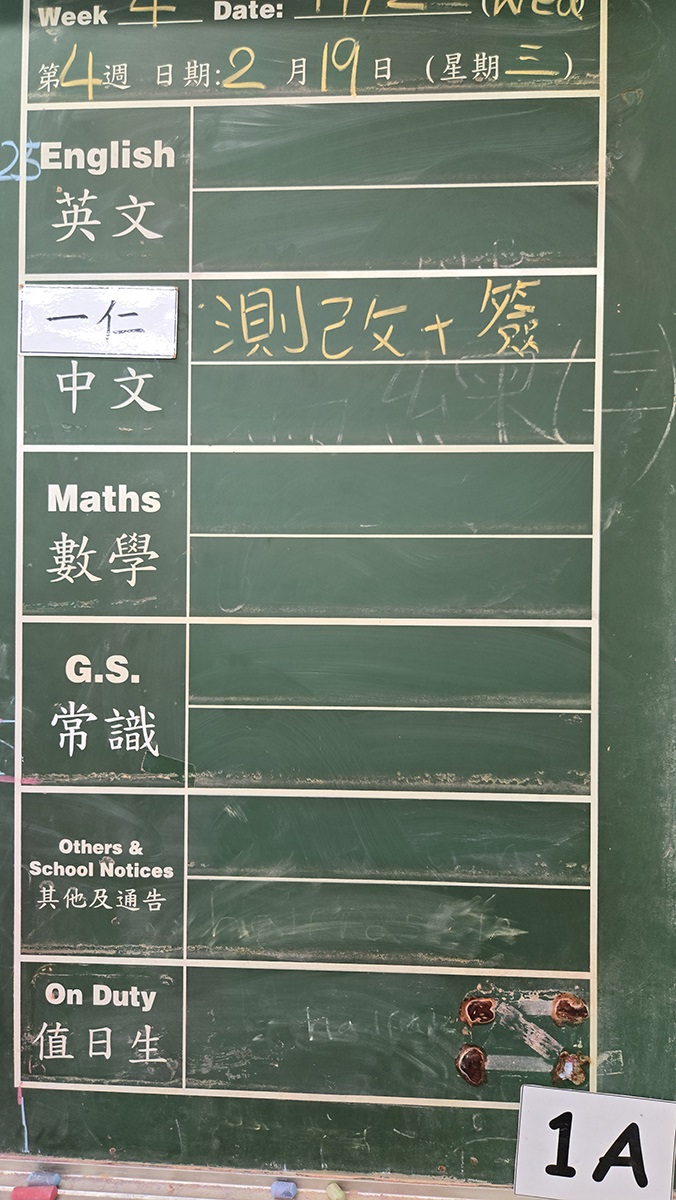 Week 4 Date: 19/2 (Wed
第4週 日期:2月19日 (星期三)
25
English
英文
一仁
測改+簽
中文
Maths
數學
G.S.
常識
Others &
School Notices
其他及通告
On Duty
值日生
1A